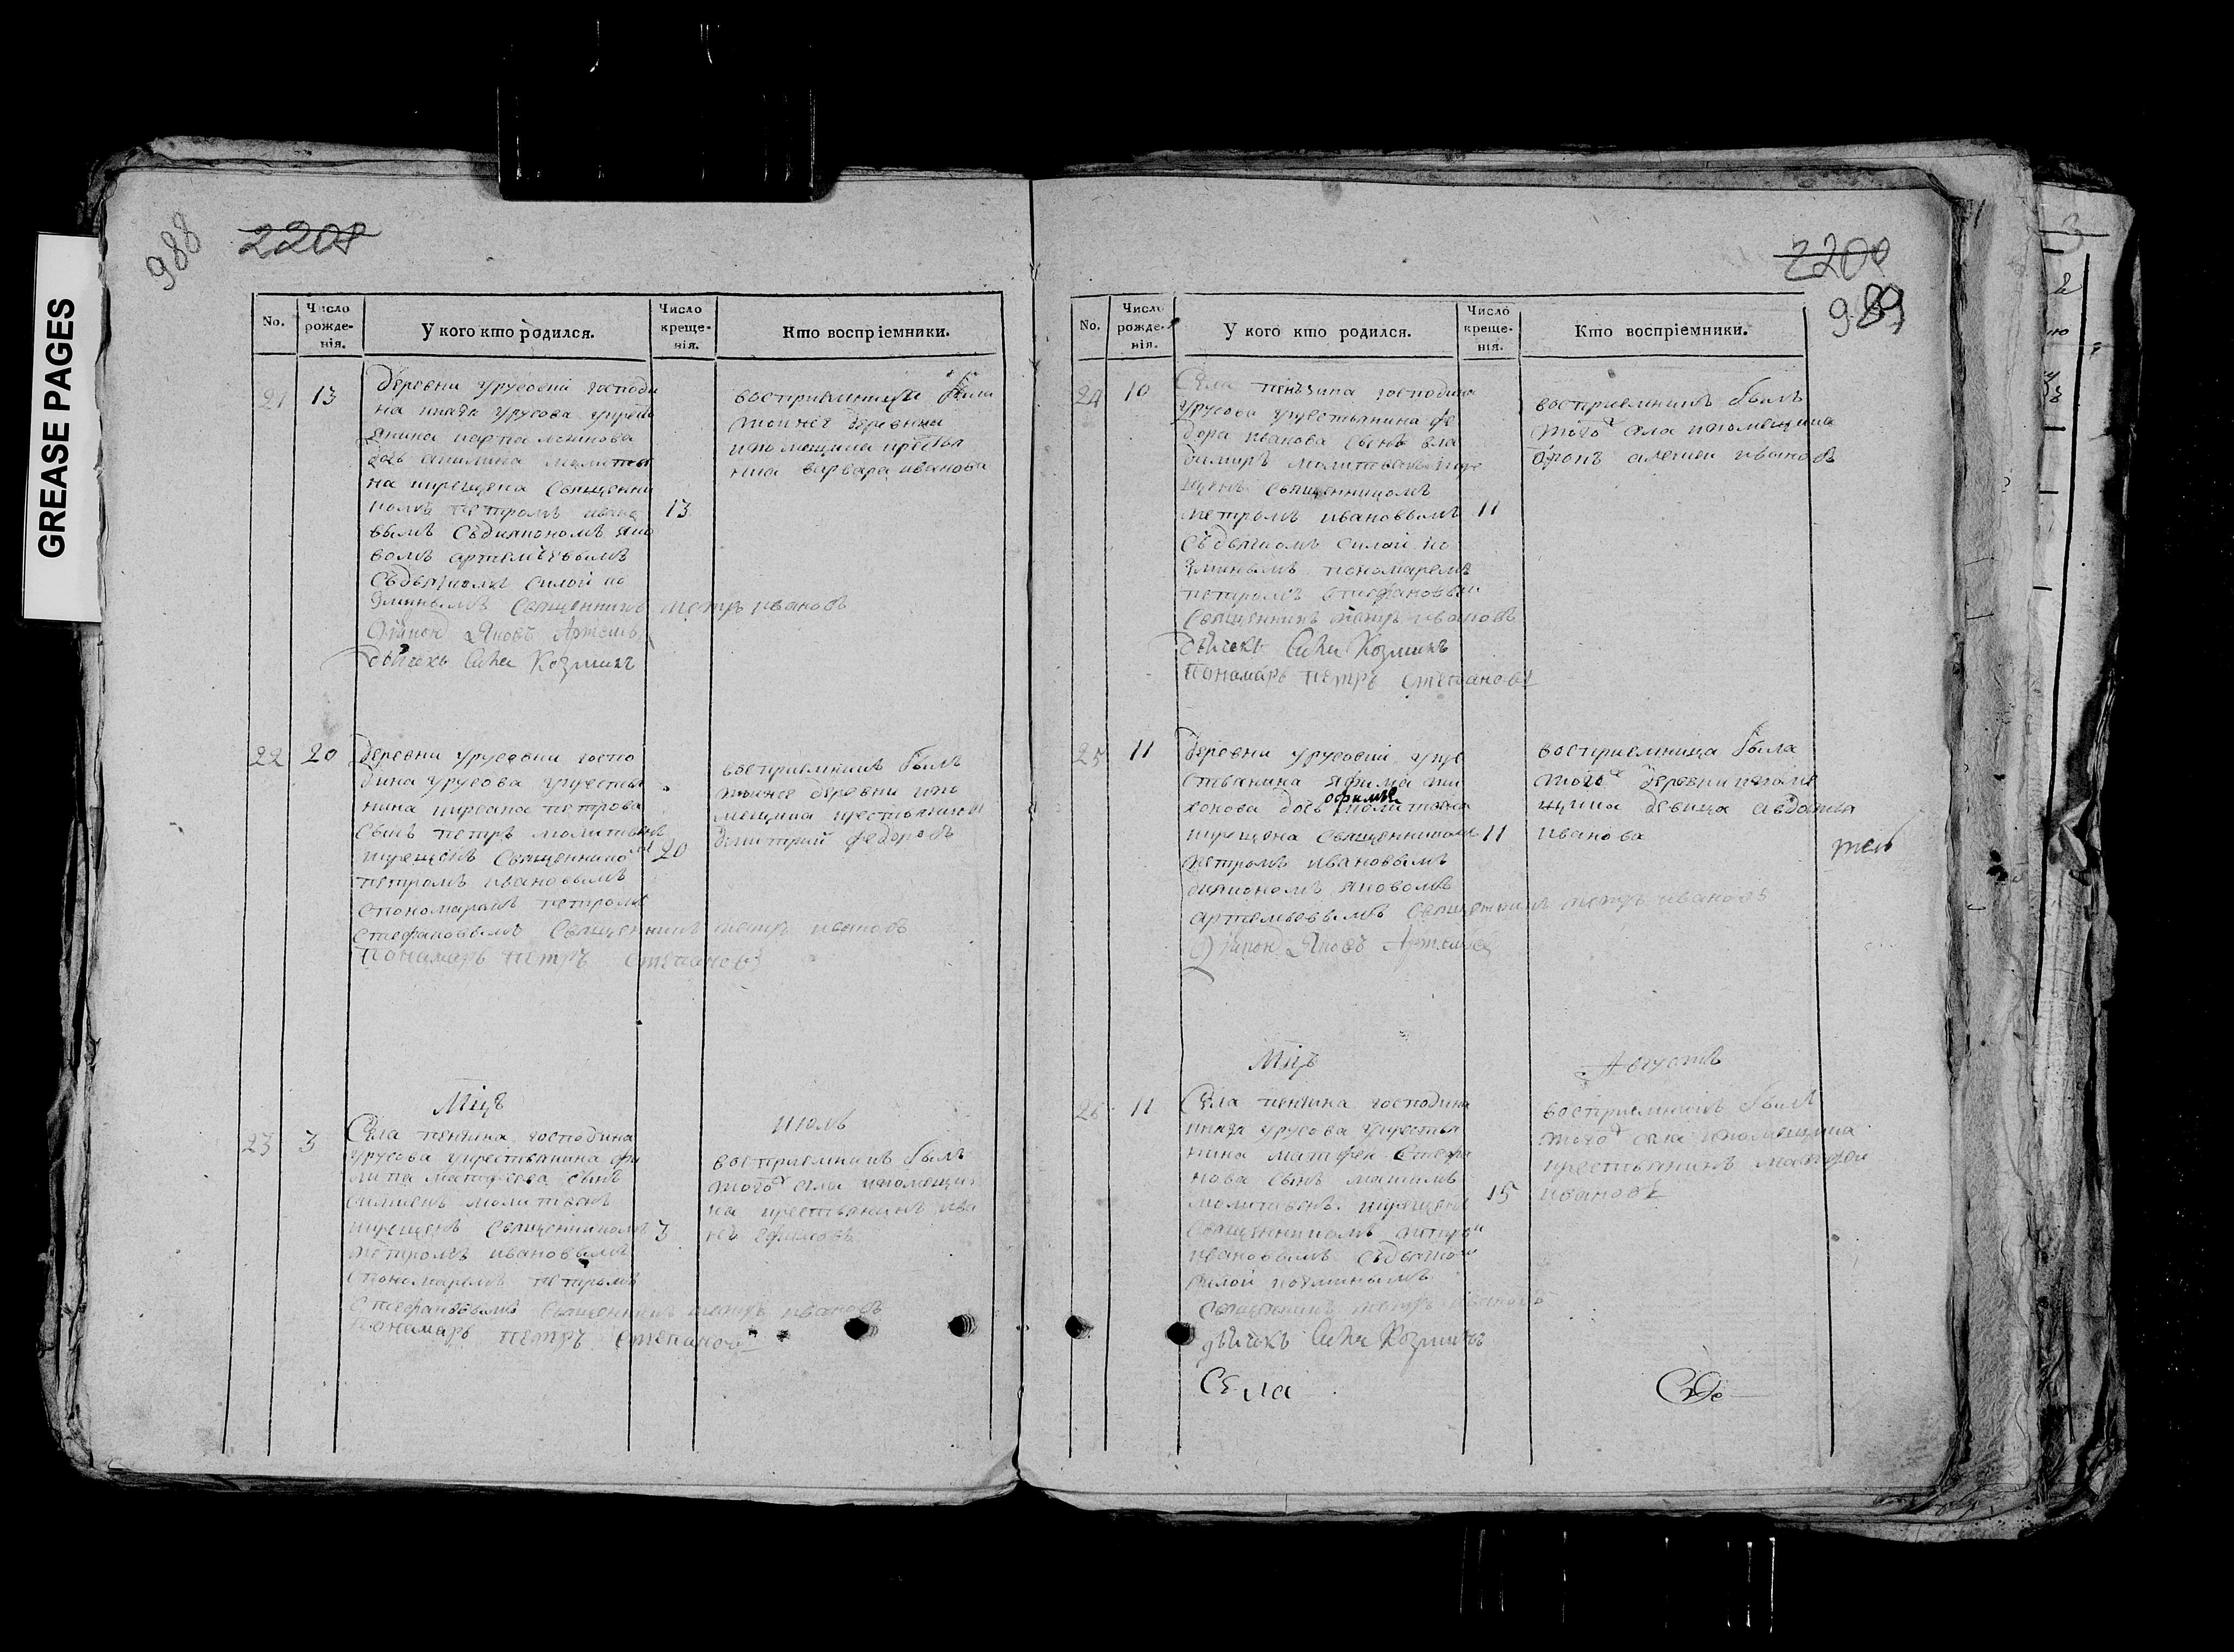 GREASE PAGES
988
2208
No.
Число рожде-нія.
У кого кто родился.
Число креще-нія.
Кто воспріемники.
21
13
деревни урусовки господи
на князя урусова укресть
янина
дочь акилина молитво
на икрещена священни
комъ петромъ ивано
вымъ съдиякономъ яко
вомъ артемьевымъ
съдьячкомъ силой ко
зминымъ священникъ петръ ивановъ
Диякон Яковъ Артемьев
дьячекъ Сила Козминъ
13
восприемница была
тоиже деревни
ипомещика крестья
ниа варвара иванова
22
20
деревни урусовки госпо
дина урусова укрестья
нина кирсана петрова
сынъ петръ молитвенъ
икрещенъ священнико м
петромъ ивановымъ
спономаремъ петромъ
стефановымъ священникъ петръ ивановъ
пономарь петръ степановъ
20
восприемникъ былъ
тоиже деревни ипо
мещика крестьянинъ
димитрий федоровъ
Мцъ
июль
23
3
Села пензина господина
урусова укрестьянина фи
липа матфеева сынъ
симиенъ молитвенъ
икрещенъ священникомъ
петромъ ивановымъ
спономаремъ петромъ
стефановымъ священникъ петръ ивановъ
пономарь петръ степановъ
3
восприемникъ былъ
тогож села ипомещи
ка крестьянинъ ива
нъ ефимовъ
2208
989
No.
Число рожде-нія.
У кого кто родился.
Число креще-нія.
Кто воспріемники.
24
10
Села пензина господина
урусова укрестьянина фе
дора иванова сынъ вла
димиръ молитвенъ икре
щенъ священникомъ
петромъ ивановымъ
съдьячкомъ силой ко
зминымъ пономаремъ
петромъ стефановым
священникъ петръ ивановъ
дьячекъ Сила Козминъ
пономарь петръ степановъ
11
восприемникъ былъ
тогож села ипомещика
алексеи ивановъ
25
11
деревни урусовки укре
стьянина яфима ти
хонова дочь офимья молитвена
икрещена священникомъ
петромъ ивановымъ
диякономъ яковомъ
артемьевымъ священникъ петръ ивановъ
Диякон Яковъ Артемьев
11
восприемница была
тогож деревни ипоме
щика девица авдотья
иванова
Мцъ
Августъ
26
11
Села пензина господина
князя урусова укрестья
нина матфея стефа
нова сынъ
молитвенъ икрещенъ
священникомъ петром
ивановымъ съдьячко м
силой козминымъ
священникъ петръ ивановъ
дьячекъ Сила Козминъ
15
восприемникъ былъ
тогож села ипомещика
крестьянинъ матфеи
ивановъ
Села